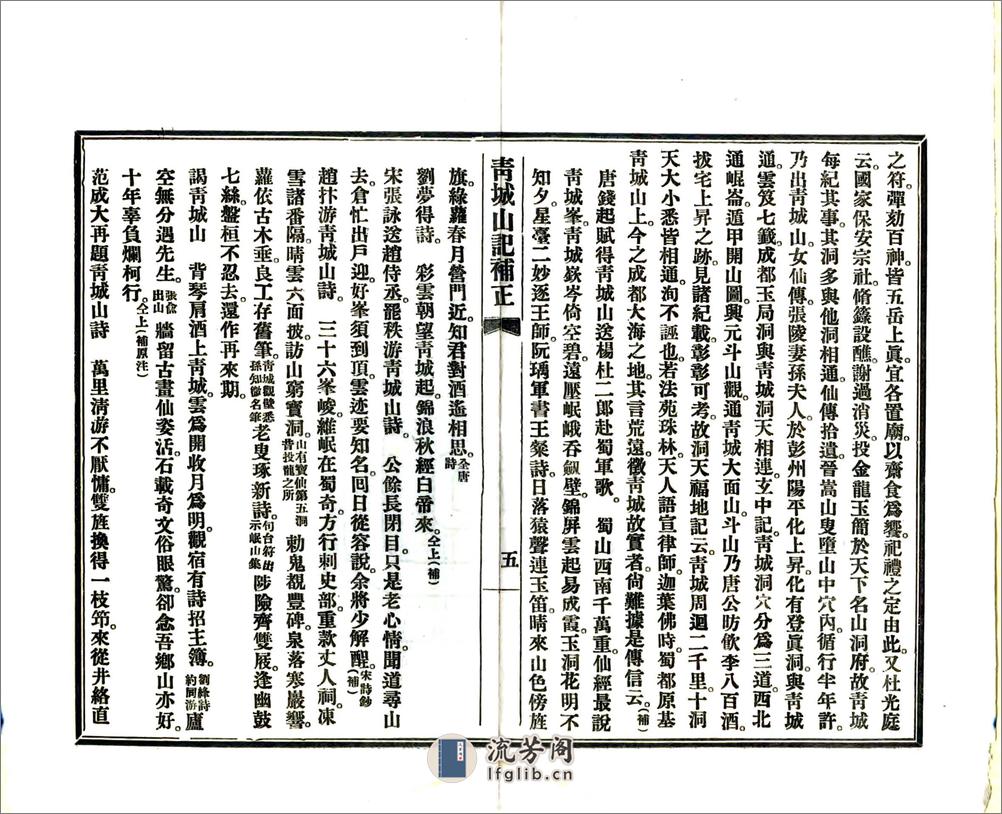 之符彈劾百神皆五岳上眞宜各置廟以齋食爲饗祀禮之定由此又杜光庭
云國家保安宗社脩籙設醮謝過消災投金龍玉簡於天下名山洞府故靑城
每紀其事其洞多與他洞相通仙傳拾遺晉嵩山叟墮山中穴內循行半年許
乃出靑城山女仙傳張陵妻孫夫人於彭州陽平化上昇化有登眞洞與靑城
通雲笈七籤成都玉局洞與靑城洞天相連玄中記靑城洞穴分爲三道西北
通崐崙遁甲開山圖興元斗山觀通靑城大面山斗山乃唐公昉飮李八百酒
拔宅上昇之跡見諸紀載彰彰可考故洞天福地記云靑城周迴二千里十洞
天大小悉皆相通洵不誣也若法苑珠林天人語宣律師迦葉佛時蜀都原基
靑城山上今之成都大海之地其言荒遠徵靑城故實者尙難據是傳信云(補)
唐錢起賦得靑城山送楊杜二郎赴蜀軍歌 蜀山西南千萬重仙經最說
靑城峯靑城嶔岑倚空碧遠壓峨岷吞劔壁錦屛雲起易成霞玉洞花明不
知夕星臺二妙逐王師阮瑀軍書王粲詩日落猿聲連玉笛晴來山色傍旌
靑城山記補正
五
旗綠蘿春月營門近知君對酒遙相思全唐詩
劉夢得詩 彩雲朝望靑城起錦浪秋經白帝來仝上(補)
宋張詠送趙侍丞罷秩游靑城山詩 公餘長閉目只是老心情聞道尋山
去倉忙出戶迎好峯須到頂雲迹要知名回日從容說余將少解酲宋詩鈔(補)
趙抃游靑城山詩 三十六峯峻維岷在蜀奇方行刺史部重款丈人祠凍
雪諸番隔晴雲六面披訪山窮寶洞山有寶仙第五洞昔投龍之所勅鬼覩豐碑泉落寒巖響
蘿依古木垂良工存舊筆靑城觀壁悉孫知微名筆老叟琢新詩句台符出示岷山集陟險齊雙屐逢幽鼓
七絲盤桓不忍去還作再來期
謁靑城山 背琴肩酒上靑城雲爲開收月爲明觀宿有詩招主簿劉綘詩約同游廬
空無分遇先生張兪出山牆留古畫仙姿活石載奇文俗眼驚卻念吾鄉山亦好
十年辜負爛柯行仝上(補原注)
范成大再題靑城山詩 萬里淸游不厭慵雙旌換得一枝筇來從井絡直
流芳阁
lfglib.cn